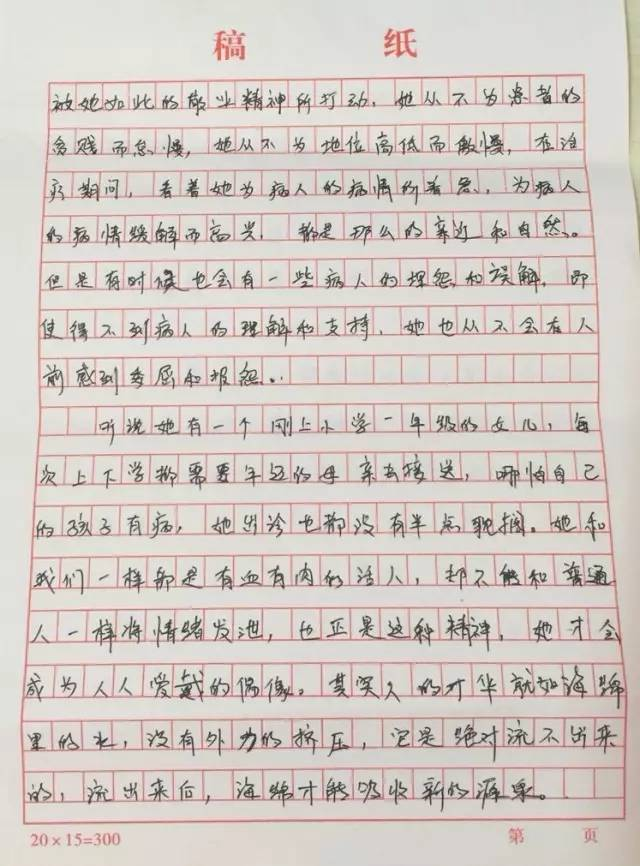 稿 纸
被她如此的敬业精神所打动。她从不为患者的
贫贱而怠慢，她从不为地位高低而傲慢，在治
疗期间，看着她为病人的病情而着急，为病人
的病情缓解而高兴，都是那么的亲近和自然。
但是有时候也会有一些病人的埋怨和误解，即
使得不到病人的理解和支持，她也从不会在人
前感到委屈和报怨。
听说她有一个刚上小学一年级的女儿，每
次上下学都需要年迈的母亲去接送，哪怕自己
的孩子有病，她出诊也都没有半点耽搁。她和
我们一样都是有血有肉的活人，却不能和普通
人一样将情绪发泄，也正是这种精神，她才会
成为人人爱戴的偶像。其实人的才华就如海绵
里的水，没有外力的挤压，它是绝对流不出来
的，流出来后，海绵才能吸收新的源泉。
20×15=300
第 页